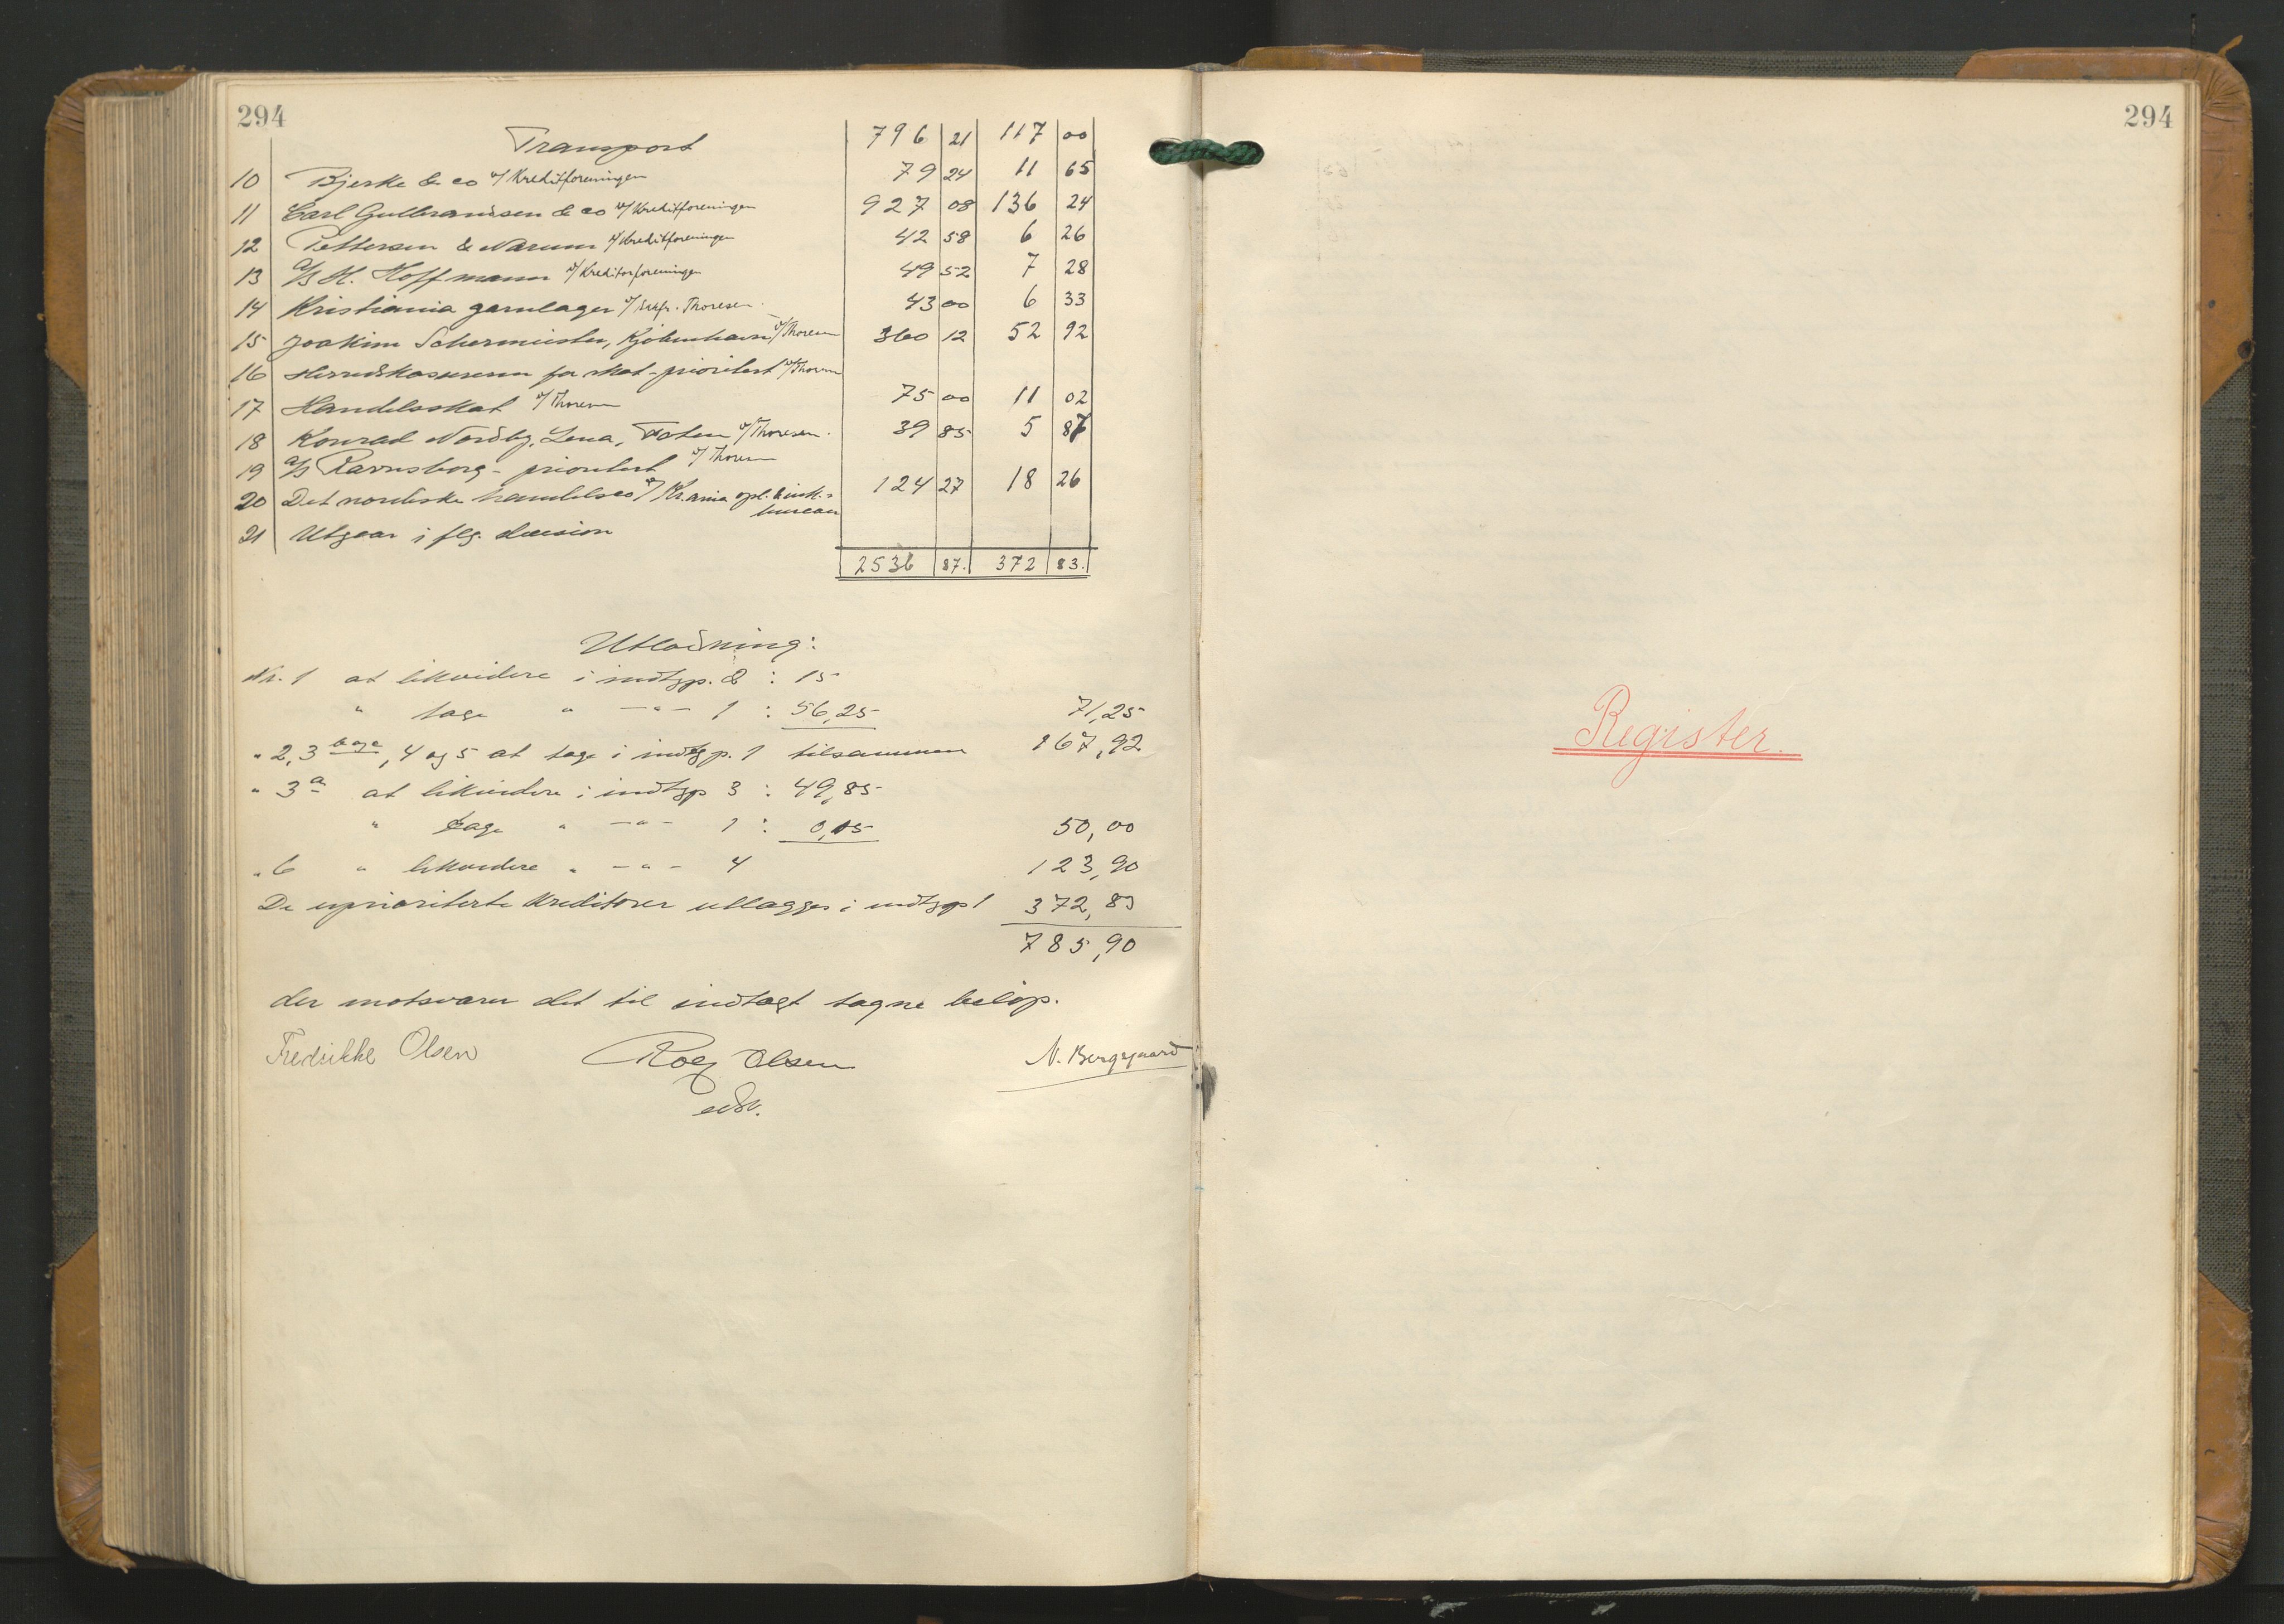 294
Transport 796 21 117 00
10 Bjerke & co v/ Kreditforeningen 79 24 11 65
11 Carl Gulbrandsen & co v/ Kreditforeningen 927 08 136 24
12 Pettersen & Narum v/ Kreditforeningen 42 58 6 26
13 A/S H. Hoffmann v/ Kreditorforeningen 49 52 7 28
14 Kristiania garnlager v/ sakfr. Thoresen 43 00 6 33
15 Joakim Schermeister, Kjøbenhavn v/ Thoresen 360 12 52 92
16 Herredskassereren for skat - prioritert v/ Thoresen
17 Handelsskat v/ Thoresen 75 00 11 02
18 Konrad Nordby, Lena, Toten v/ Thoresen. 39 85 5 87
19 A/S Ravnsborg - prioritert v/ Thoresen
20 Det nordiske handelsco v/ Kr.ania opl. & ink.- 124 27 18 26
bureau
21 Utgaar i flg. decision
2536 87. 372 83.
Utlodning:
Nr. 1 at likvidere i indtgp. 2 : 15
" tage " -"- 1 : 56,25 71,25
" 2, 3 b og c, 4 og 5 at tage i indtgp. 1 tilsammen 167,92
" 3 a at likvidere i indtgp 3 : 49,85
" tage " -"- 1 : 0,15 50,00
" 6 " likvidere " -"- 4 123,90
De uprioriterte kreditorer utlægges i indtgp 1 372,83
785,90
der motsvarer det til indtægt tagne beløp.
Fredrikke Olsen Rolf Olsen N. Berggaard
294
Register.